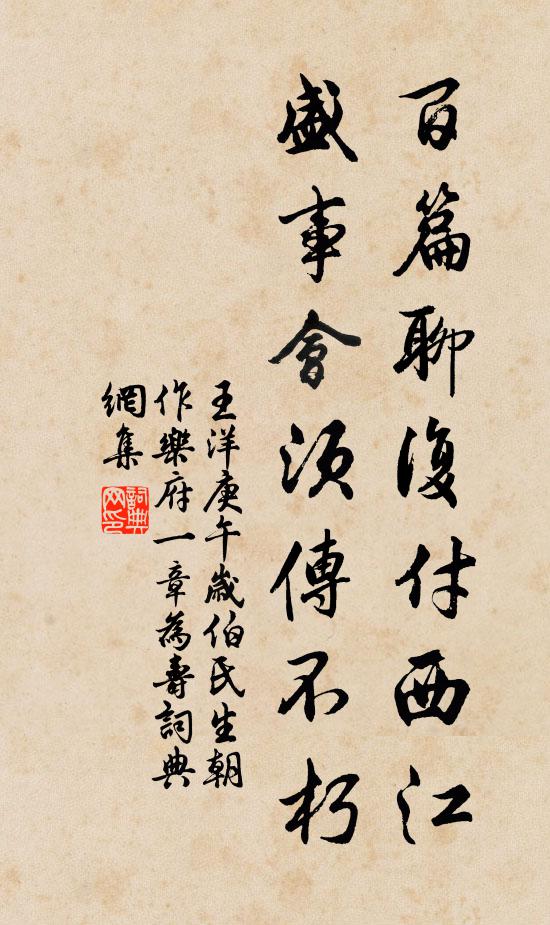 百篇聊復付西江
盛事會須傳不朽
王洋庚午歲伯氏生朝
作樂府一章為壽詞典
網集
詞典
网印